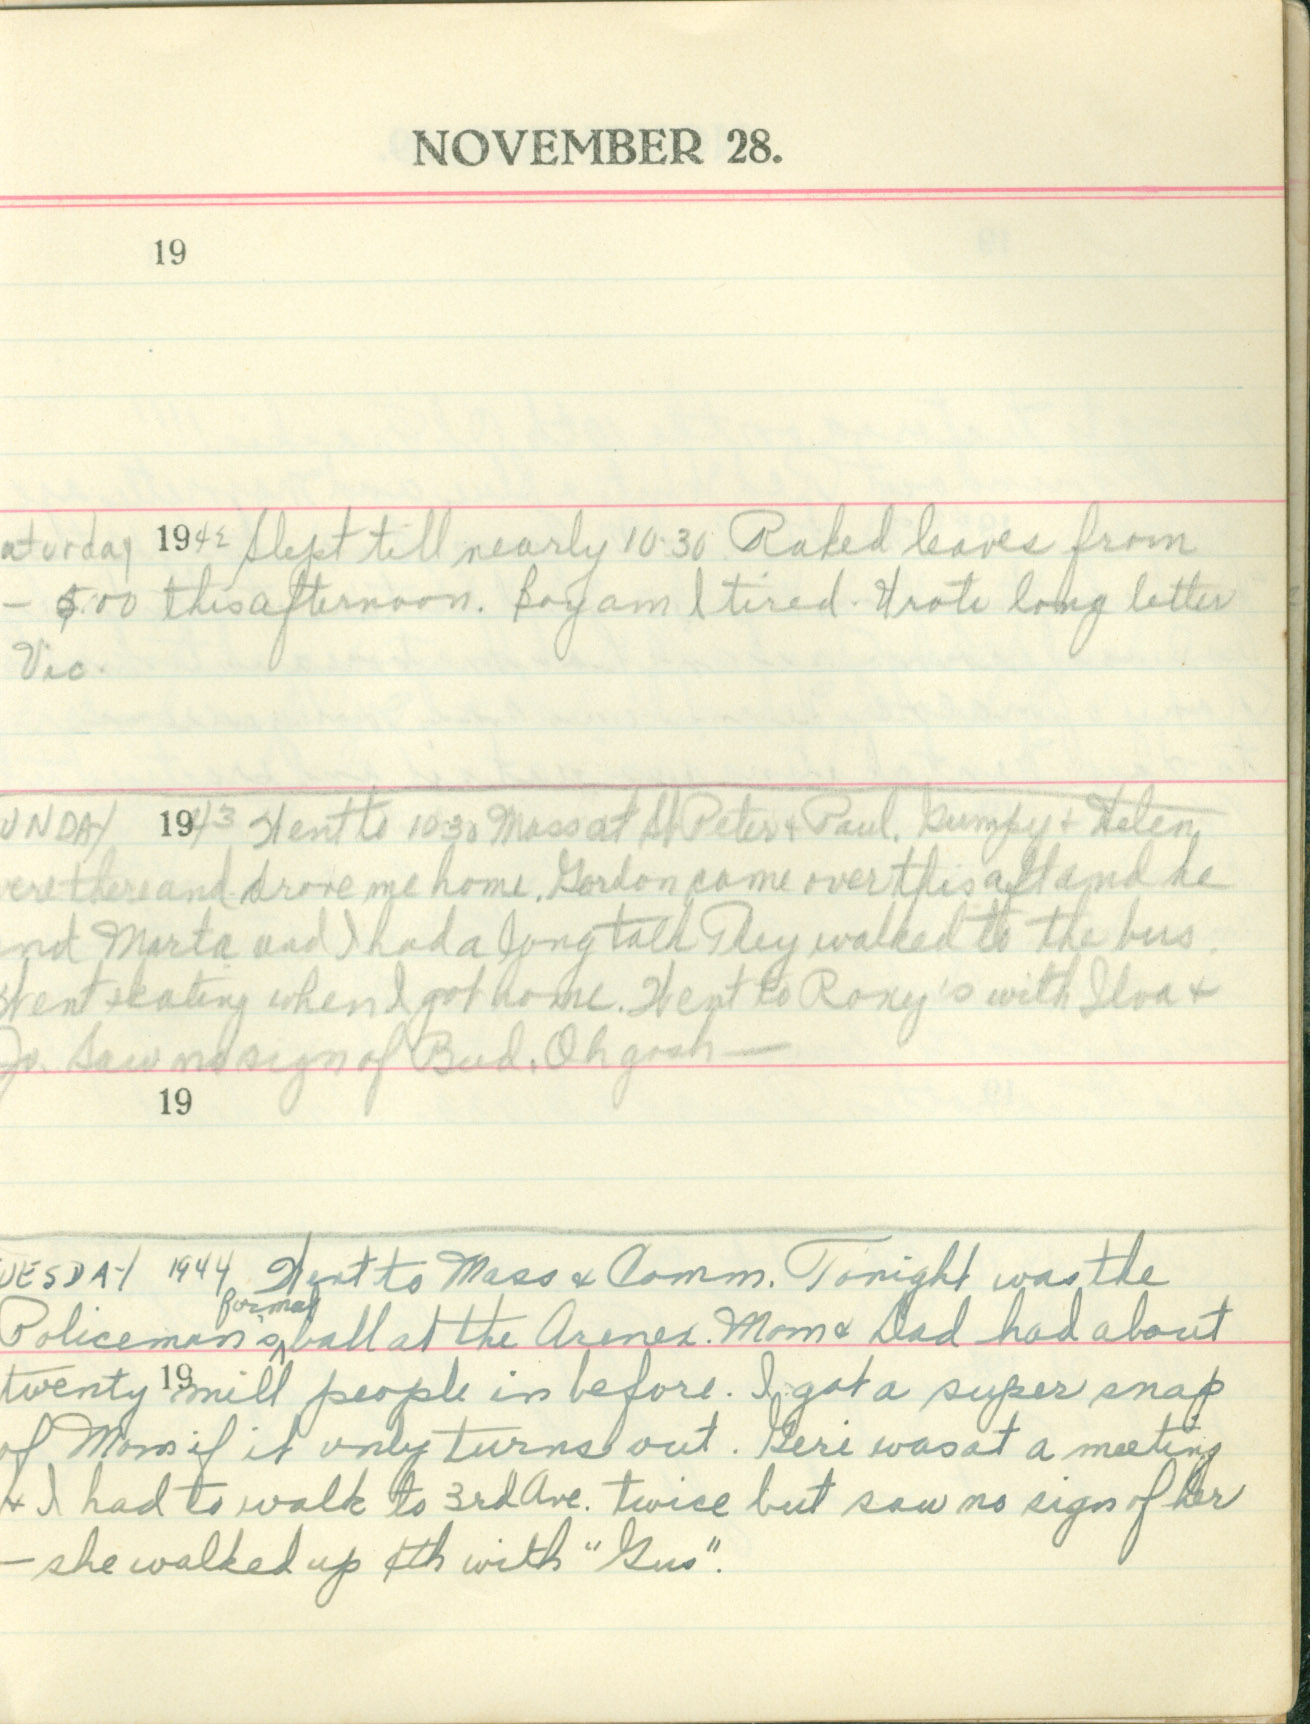 NOVEMBER 28.
19
aturday 1942 Slept till nearly 10:30 Raked leaves from
– 5:00 this afternoon. Boy am I tired. Wrote long letter
Vic.
UNDAY 1943 Went to 10:30 Mass at St Peter & Paul. Gumpy & Helen
were there and drove me home. Gordon came over this aft and he
and Marta and I had a long talk They walked to the bus.
Went skating when I got home. Went to Roxy's with Ilva &
Jo. Saw no sign of Bud. Oh gosh —
19
UESDAY 1944 Went to Mass & Comm. Tonight was the
Policeman's formal ball at the Arena. Mom & Dad had about
twenty 19 mill people in before. I got a super snap
of Mom if it only turns out. Geri was at a meeting
& I had to walk to 3rd Ave. twice but saw no sign of her
— she walked up 4th with "Gus".